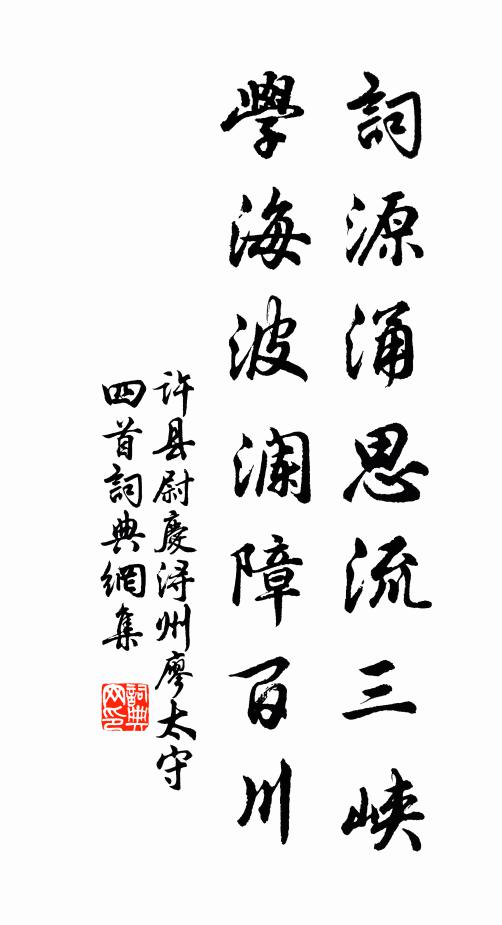 詞源涌思流三峽
學海波瀾障百川
许县尉慶潯州廖太守
四首詞典網集
詞典网印